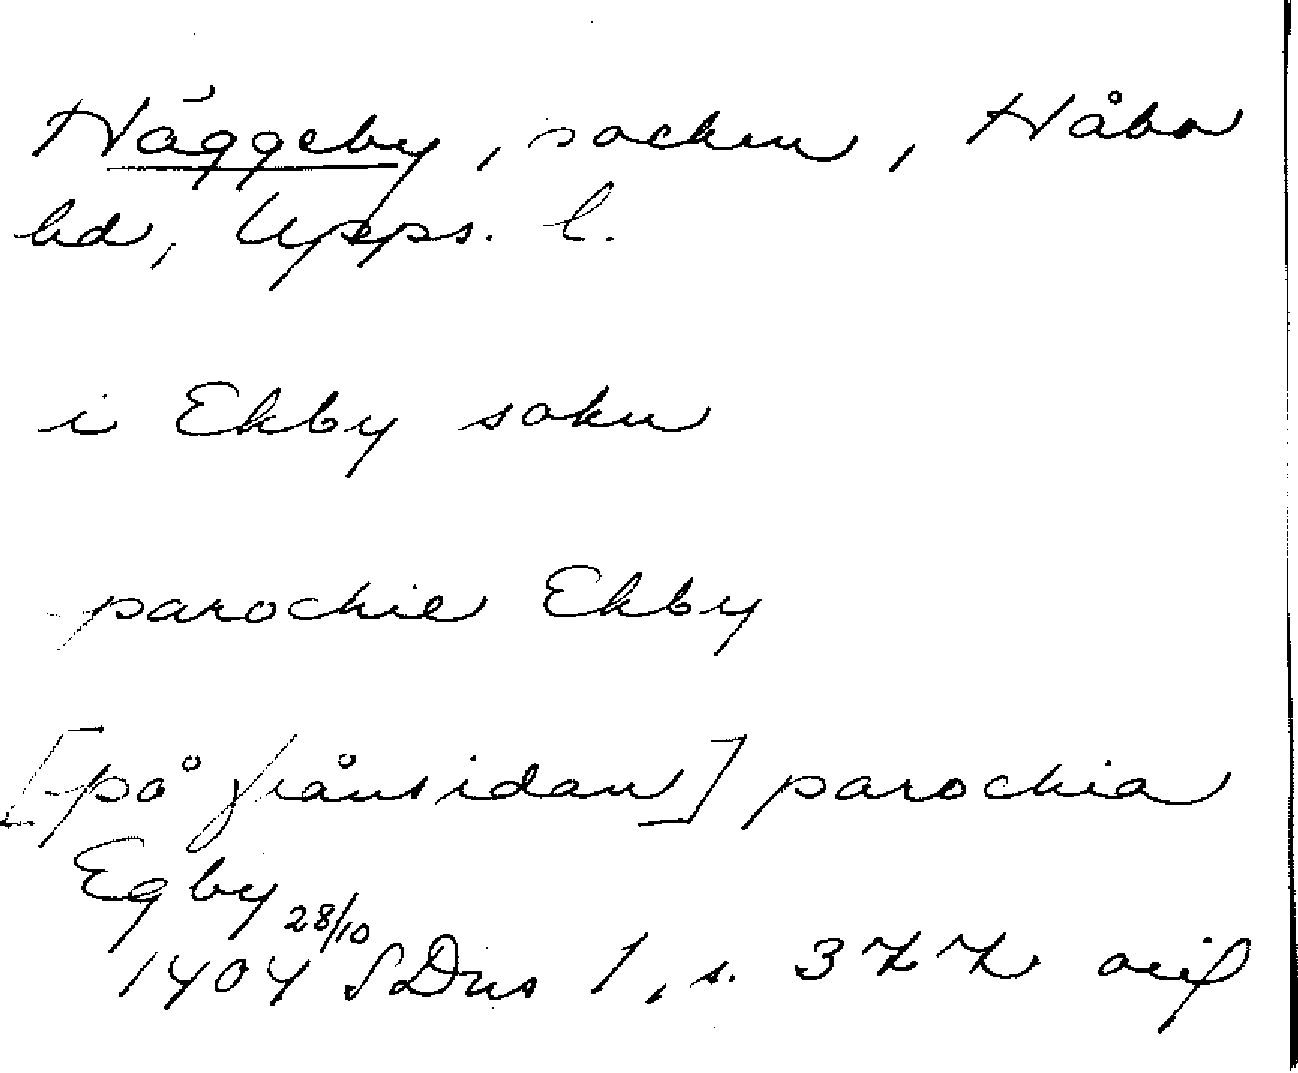 Häggeby, socken, Håbo
hd, Upps. l.
i Ekby sokn
parochie Ekby
[på frånsidan] parochia
Egby
28/10
1404 SDns 1, s. 377 orig